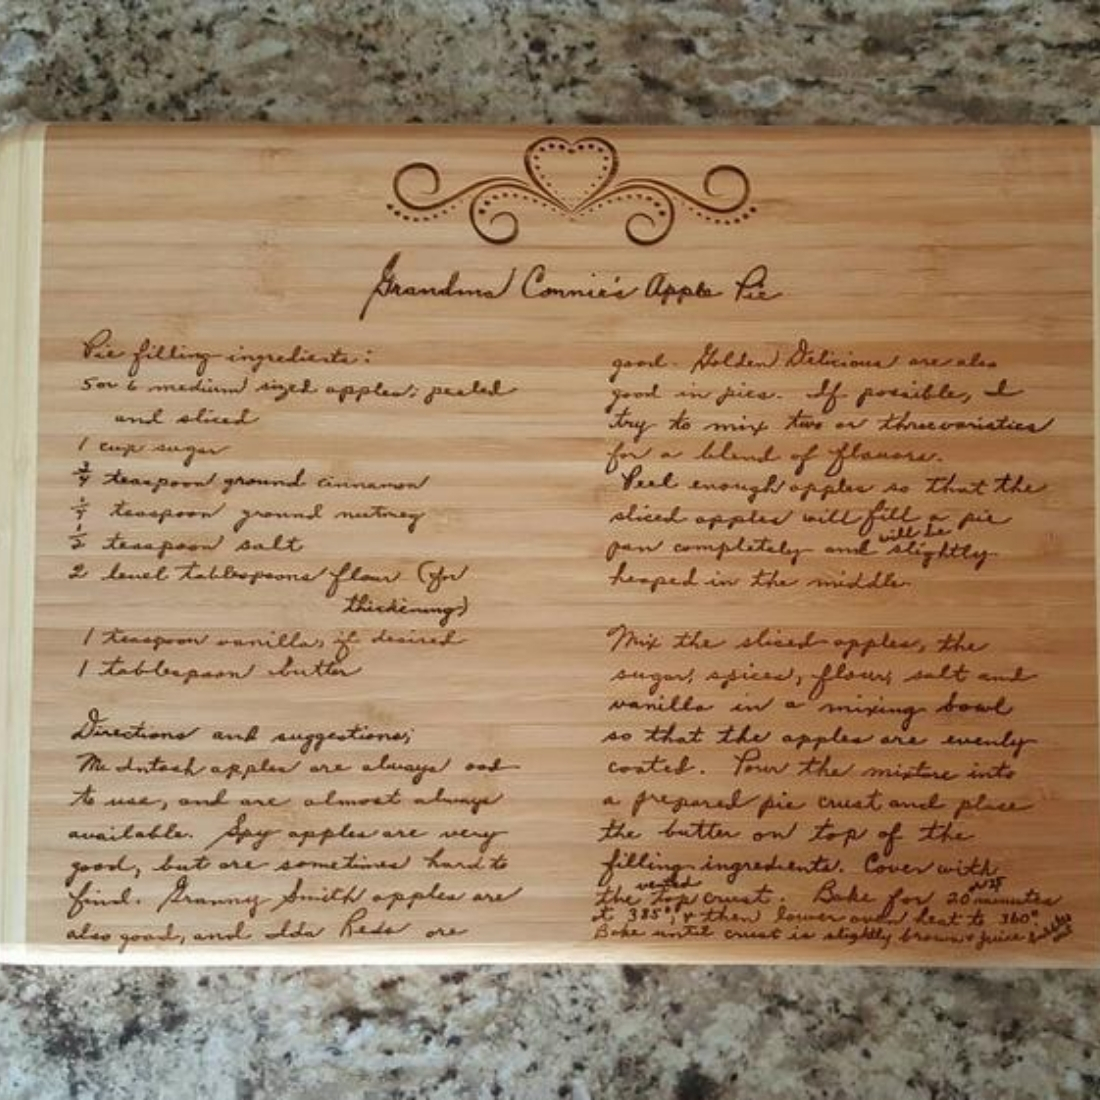 Grandma Connie's Apple Pie
Pie filling ingredients:
5 or 6 medium sized apples; peeled
and sliced
1 cup sugar
3/4 teaspoon ground cinnamon
teaspoon ground nutmeg
1/2 teaspoon salt
2 level tablespoons flour (for
thickening)
1 teaspoon vanilla, if desired
1 tablespoon butter
Directions and suggestions;
McIntosh apples are always
to use, and are almost always
available. Spy apples are very
good, but are sometimes hard to
find. Granny Smith apples are
also good, and Ida Reds are
good. Golden Delicious are also
good in pies. If possible, I
try to mix two or three varieties
for a blend of flavors.
Peel enough apples so that the
sliced apples will fill a pie
pan completely and will be slightly
heaped in the middle.
Mix the sliced apples, the
sugar, spices, flour, salt and
vanilla in a mixing bowl
so that the apples are evenly
coated. Pour the mixture into
a prepared pie crust and place
the butter on top of the
filling ingredients. Cover with
the vented top crust. Bake for 20 or 25 minutes
at 385°, & then lower oven heat to 360°.
Bake until crust is slightly brown & juice